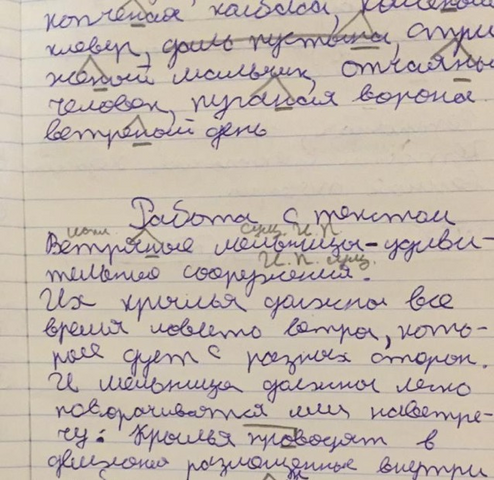 копчёная колбаса, калёный
клевер, даль пустына, стри
женый мальчик, отчаяны
человек, пуганая ворона
ветреный день
Работа с текстом
сущ. И. П.
Ветряные мельницы-удиви-
И. п. сущ.
тельные сооружения.
Их крылья должны все
время ловить ветра, кото-
рые дует с разных сторон.
И мельница должны легко
поворачиваться им навстре-
чу. Крылья приводят в
движения размещенные внутри